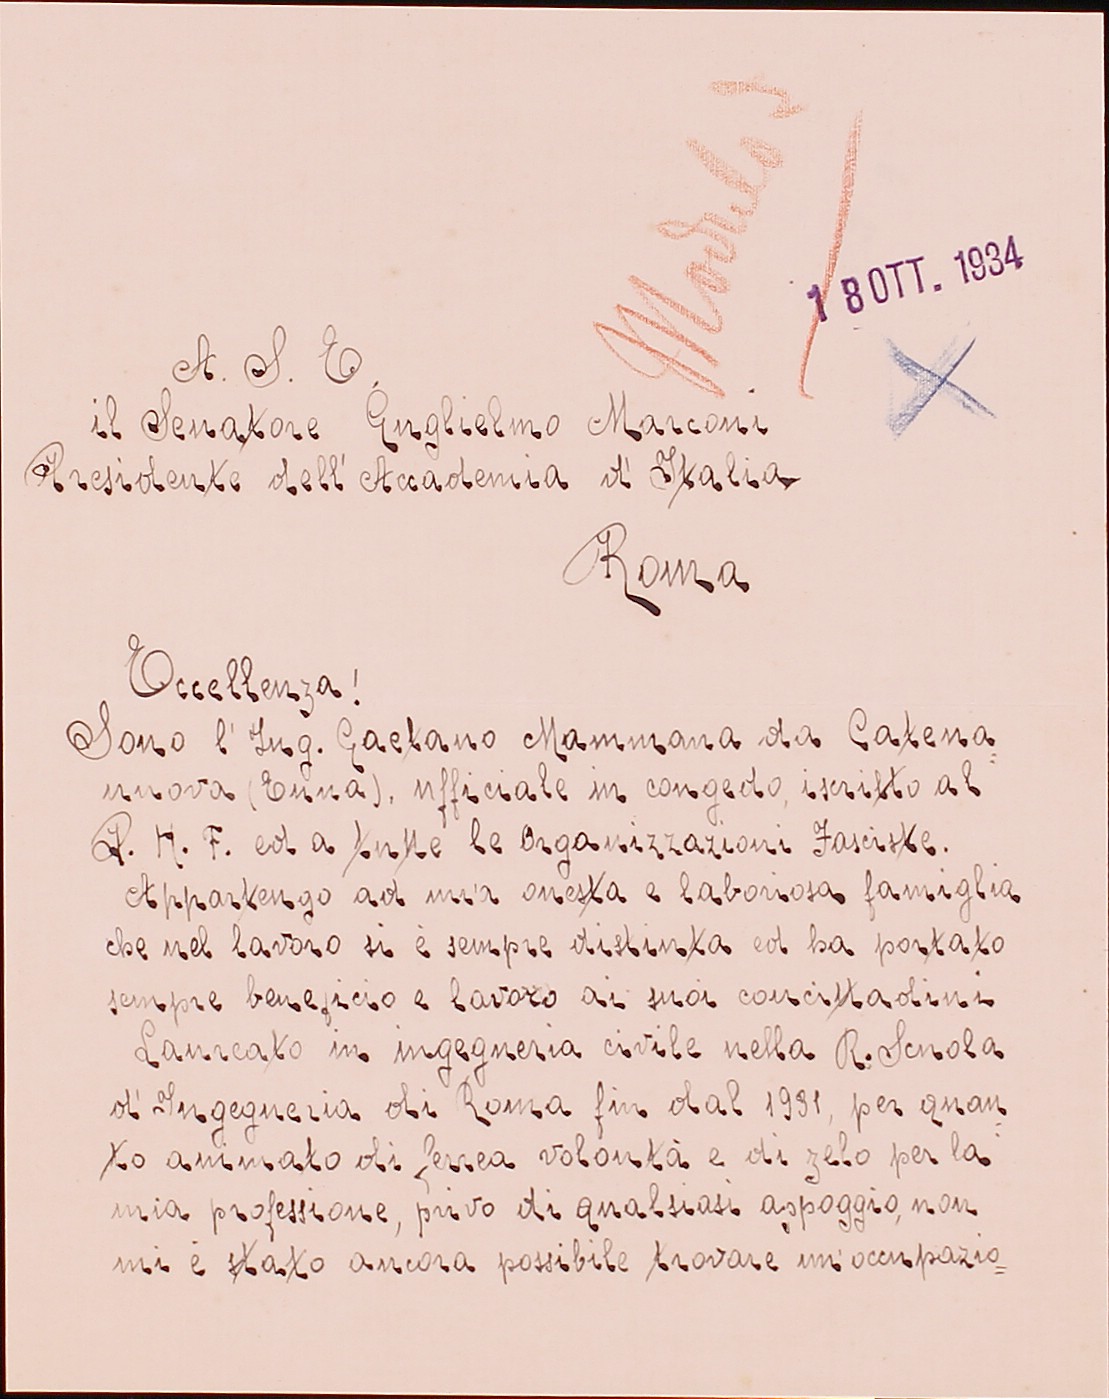 Modulo 5
18 OTT. 1934
A. S. E.
il Senatore Guglielmo Marconi
Presidente dell'Accademia d'Italia
Roma
Eccellenza!
Sono l'Ing. Gaetano Mammana da Catena=
nuova (Enna), ufficiale in congedo, iscritto al
P. N. F. ed a tutte le Organizzazioni Fasciste.
Appartengo ad una onesta e laboriosa famiglia
che nel lavoro si è sempre distinta ed ha portato
sempre beneficio e lavoro ai suoi concittadini
Laureato in ingegneria civile nella R. Scuola
d'Ingegneria di Roma fin dal 1931, per quan=
to animato di ferrea volontà e di zelo per la
mia professione, privo di qualsiasi appoggio, non
mi è stato ancora possibile trovare un'occupazio=